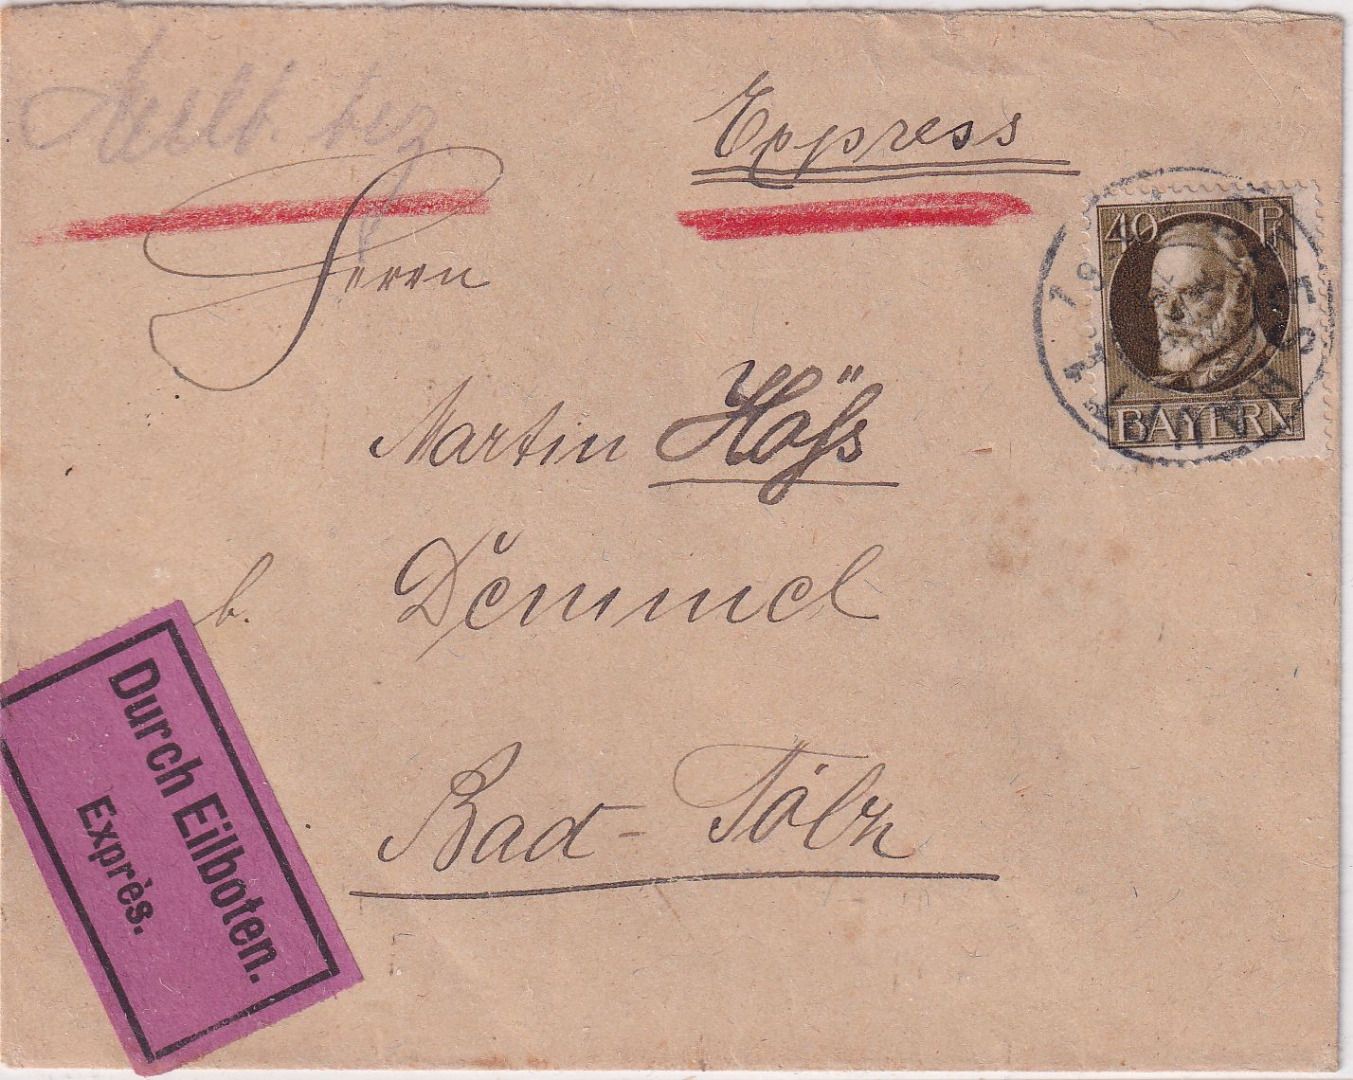 Express
Herrn
40 Pf
BAYERN
Martin Höss
b. Demmel
Bad-Tölz
Durch Eilboten.
Exprès.